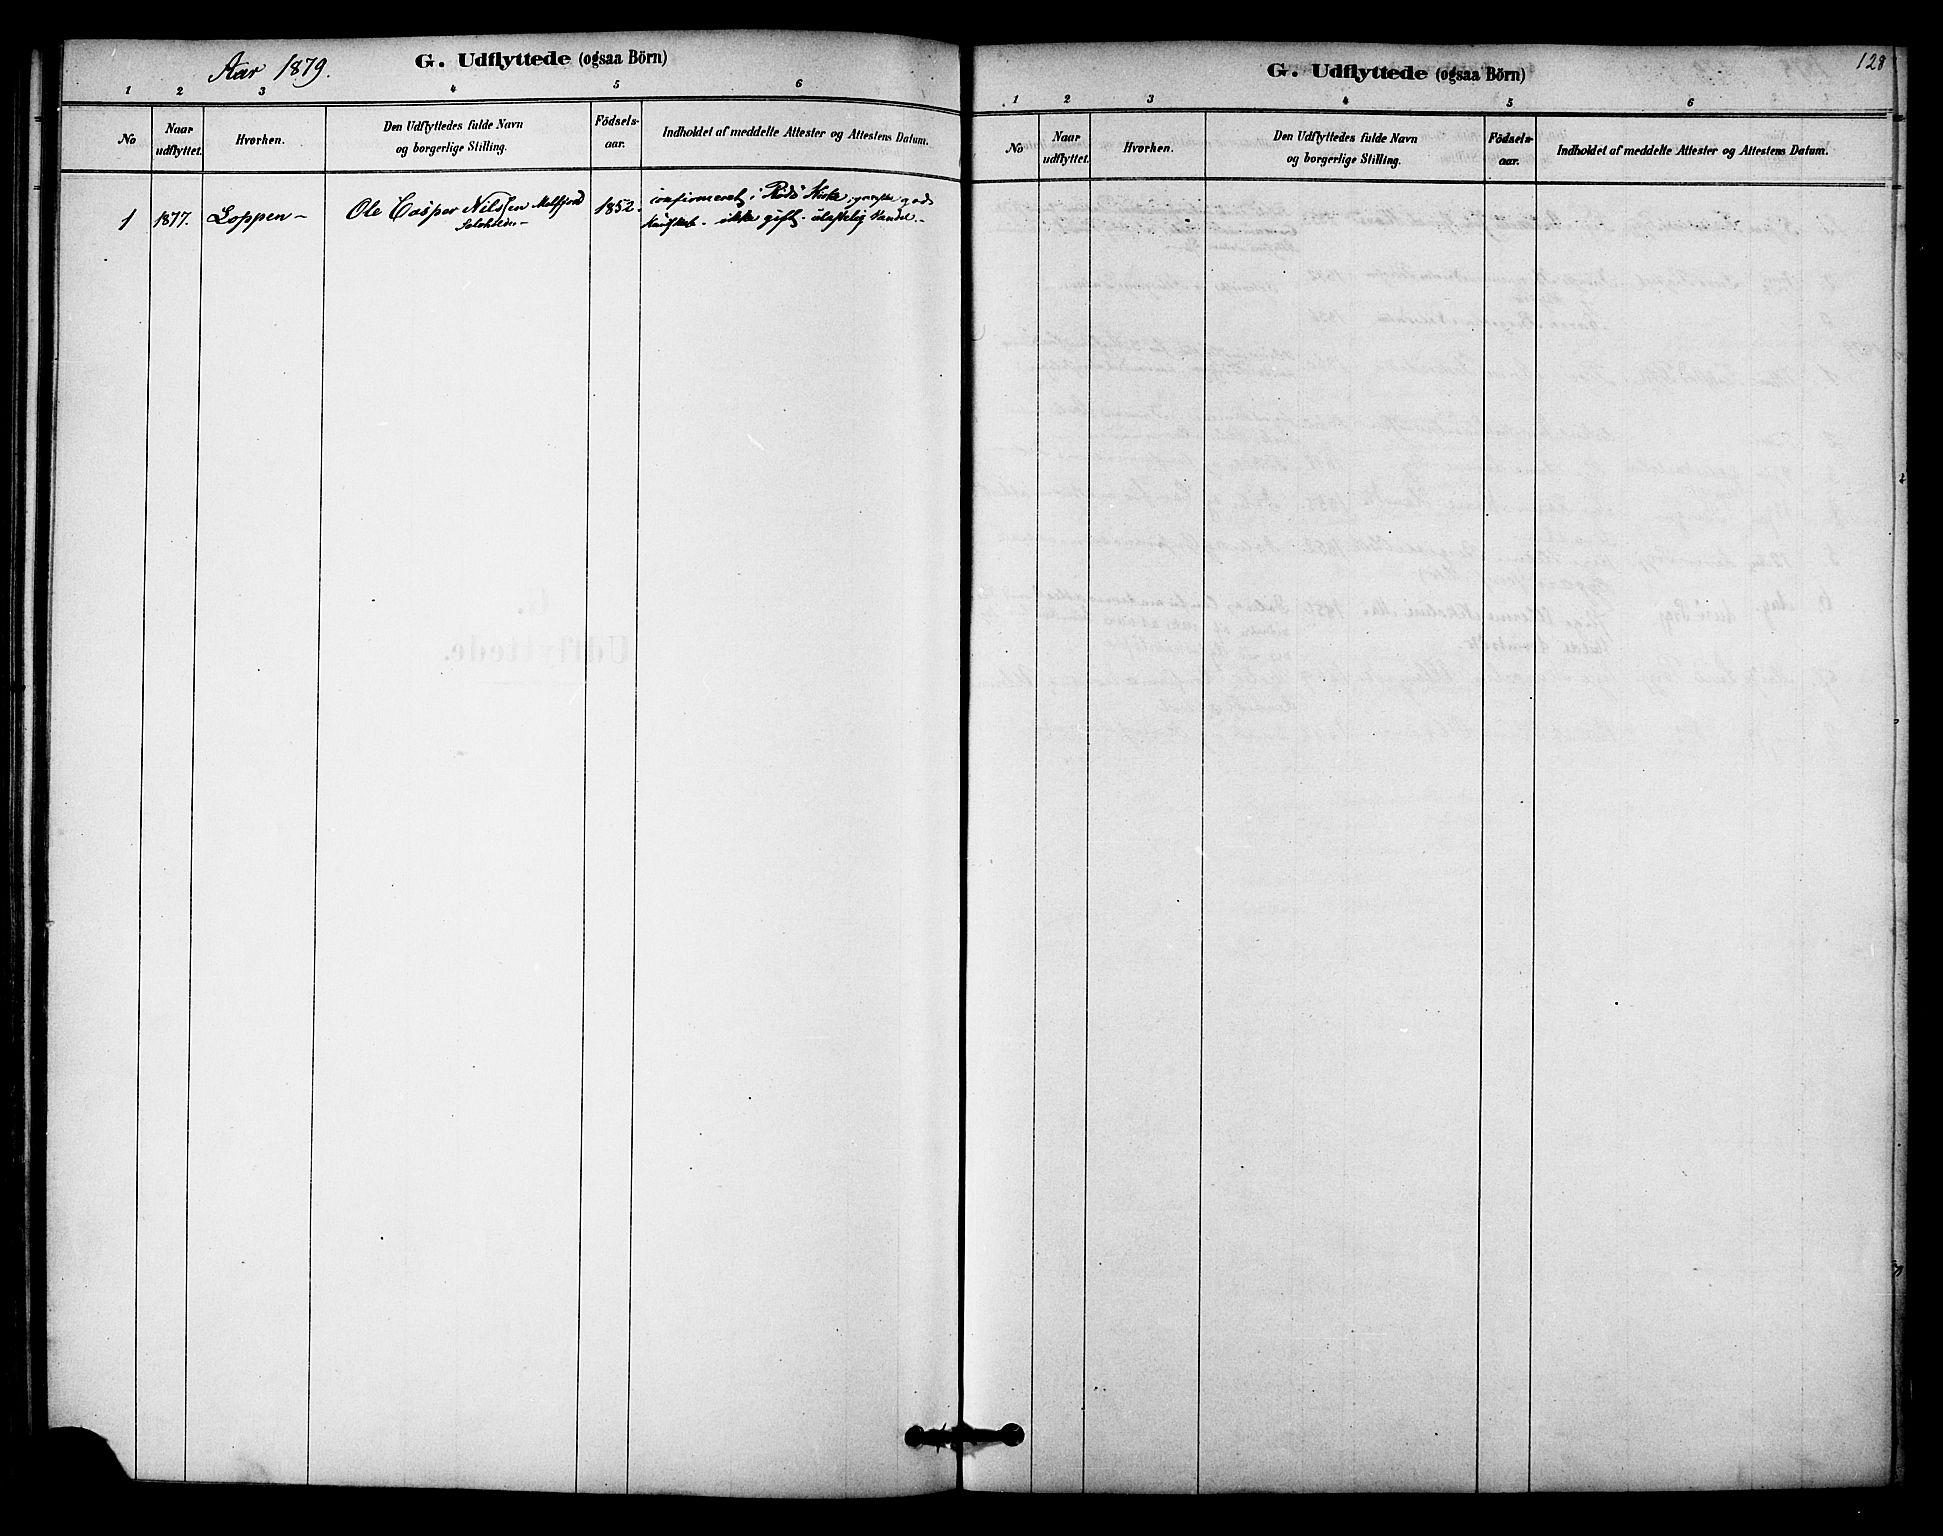 Aar 1879.
G. Udflyttede (ogsaa Börn)
1 2 3 4 5 6
No
Naar udflyttet.
Hvorhen.
Den Udflyttedes fulde Navn
og borgerlige Stilling.
Födsels-
aar.
Indholdet af meddelte Attester og Attestens Datum.
1 1877. Loppen- Ole Casper Nilssen Melfjord 1852. confirmeret i Rödö Kirke,
ikke gift.
128
G. Udflyttede (ogsaa Börn)
1 2 3 4 5 6
No
Naar
udflyttet.
Hvorhen.
Den Udflyttedes fulde Navn
og borgerlige Stilling.
Födsels-
aar.
Indholdet af meddelte Attester og Attestens Datum.